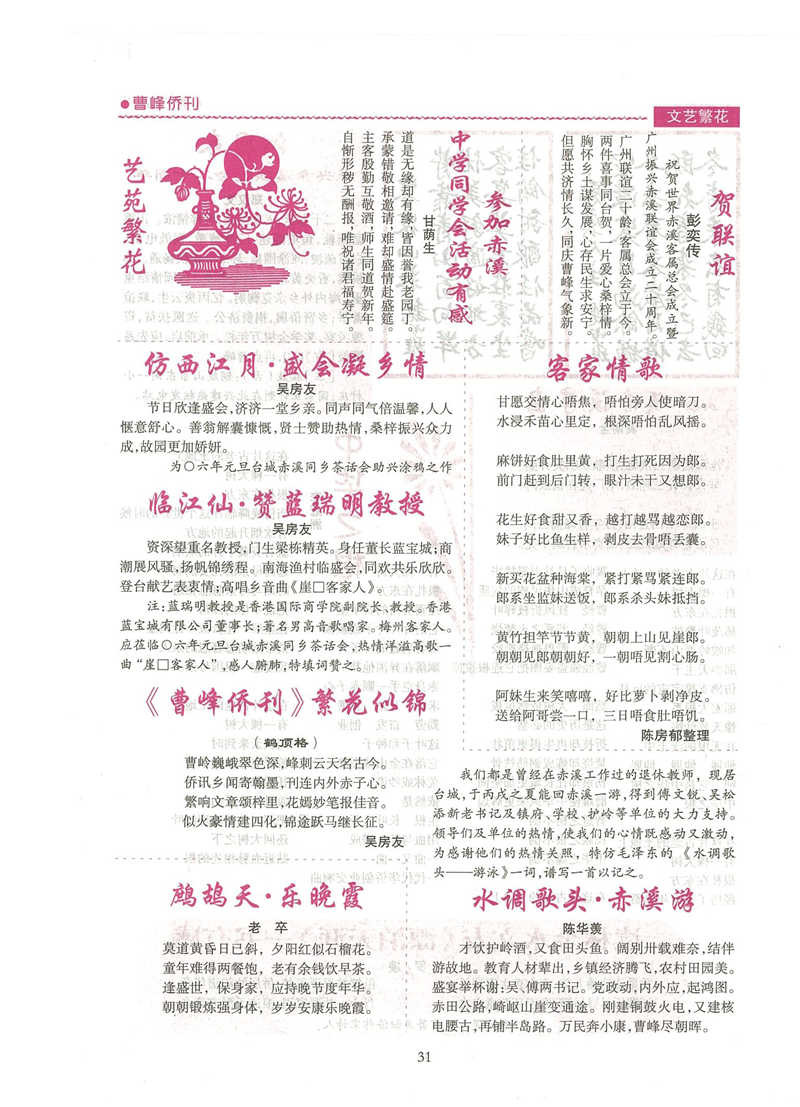 ●曹峰侨刊
文艺繁花
贺联谊
彭奕传
祝贺世界赤溪客属总会成立暨
广州振兴赤溪联谊会成立二十周年。
广州联谊二十龄，客属总会立于今。
两件喜事同台贺，一片爱心桑梓情。
胸怀乡土谋发展，心存民生求安宁。
但愿共济情长久，同庆曹峰气象新。
参加赤溪
中学同学会活动有感
甘荫生
道是无缘却有缘，皆因誉我老园丁。
承蒙错敬相邀请，难却盛情赴盛筵。
主客殷勤互敬酒，师生同道贺新年。
自惭形秽无酬报，唯祝诸君福寿宁。
艺苑繁花
仿西江月·盛会凝乡情
吴房友
节日欣逢盛会，济济一堂乡亲。同声同气倍温馨，人人
惬意舒心。善翁解囊慷慨，贤士赞助热情，桑梓振兴众力
成，故园更加娇妍。
为○六年元旦台城赤溪同乡茶话会助兴涂鸦之作
临江仙·赞蓝瑞明教授
吴房友
资深望重名教授，门生梁栋精英。身任董长蓝宝城；商
潮展风骚，扬帆锦绣程。南海渔村临盛会，同欢共乐欣欣。
登台献艺表衷情；高唱乡音曲《崖□客家人》。
注：蓝瑞明教授是香港国际商学院副院长、教授。香港
蓝宝城有限公司董事长；著名男高音歌唱家。梅州客家人。
应莅临○六年元旦台城赤溪同乡茶话会，热情洋溢高歌一
曲“崖□客家人”，感人腑肺，特填词赞之。
《曹峰侨刊》繁花似锦
（鹤顶格）
曹岭巍峨翠色深，峰刺云天名古今。
侨讯乡闻寄翰墨，刊连内外赤子心。
繁响文章颂梓里，花嫣妙笔报佳音。
似火豪情建四化，锦途跃马继长征。
吴房友
鹧鸪天·乐晚霞
老 卒
莫道黄昏日已斜，夕阳红似石榴花。
童年难得两餐饱，老有余钱饮早茶。
逢盛世，保身家，应持晚节度年华。
朝朝锻炼强身体，岁岁安康乐晚霞。
客家情歌
甘愿交情心唔焦，唔怕旁人使暗刀。
水浸禾苗心里定，根深唔怕乱风摇。
麻饼好食肚里黄，打生打死因为郎。
前门赶到后门转，眼汁未干又想郎。
花生好食甜又香，越打越骂越恋郎。
妹子好比鱼生样，剥皮去骨唔丢囊。
新买花盆种海棠，紧打紧骂紧连郎。
郎系坐监妹送饭，郎系杀头妹抵挡。
黄竹担竿节节黄，朝朝上山见崖郎。
朝朝见郎朝朝好，一朝唔见割心肠。
阿妹生来笑嘻嘻，好比萝卜剥净皮。
送给阿哥尝一口，三日唔食肚唔饥。
陈房郁整理
我们都是曾经在赤溪工作过的退休教师，现居
台城，于丙戌之夏能回赤溪一游，得到傅文锐、吴松
添新老书记及镇府、学校、护岭等单位的大力支持。
领导们及单位的热情，使我们的心情既感动又激动，
为感谢他们的热情关照，特仿毛泽东的《水调歌
头——游泳》一词，谱写一首以记之。
水调歌头·赤溪游
陈华羡
才饮护岭酒，又食田头鱼。阔别卅载难奈，结伴
游故地。教育人材辈出，乡镇经济腾飞，农村田园美。
盛宴举杯谢；吴、傅两书记。党政动，内外应，起鸿图。
赤田公路，崎岖山崖变通途。刚建铜鼓火电，又建核
电腰古，再铺半岛路。万民奔小康，曹峰尽朝晖。
31